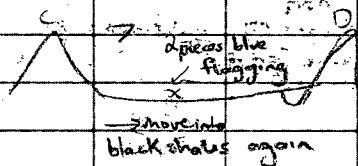 C
D
2 pieces blue
flagging
x
→ move into
black shales again